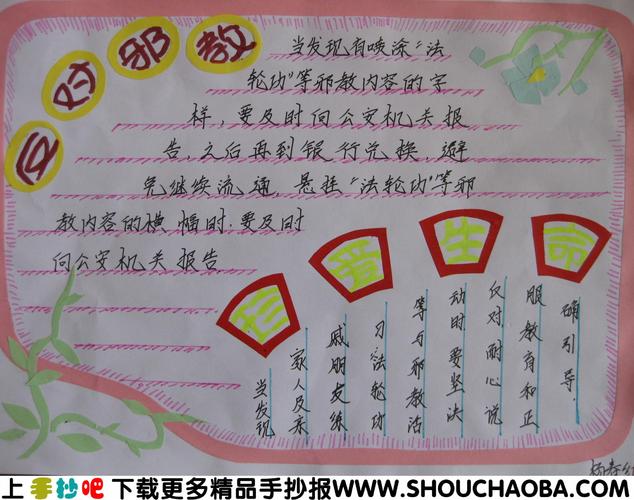 反对邪教
当发现有喷涂“法
轮功”等邪教内容的字
样，要及时向公安机关报
告，之后再到银行兑换，避
免继续流通，悬挂“法轮功”等邪
教内容的横幅时，要及时
向公安机关报告
珍爱生命
当发现
家人及亲
戚朋友练
习法轮功
等与邪教活
动时要坚决
反对耐心说
服教育和正
确引导.
上手抄吧下载更多精品手抄报WWW.SHOUCHAOBA.COM